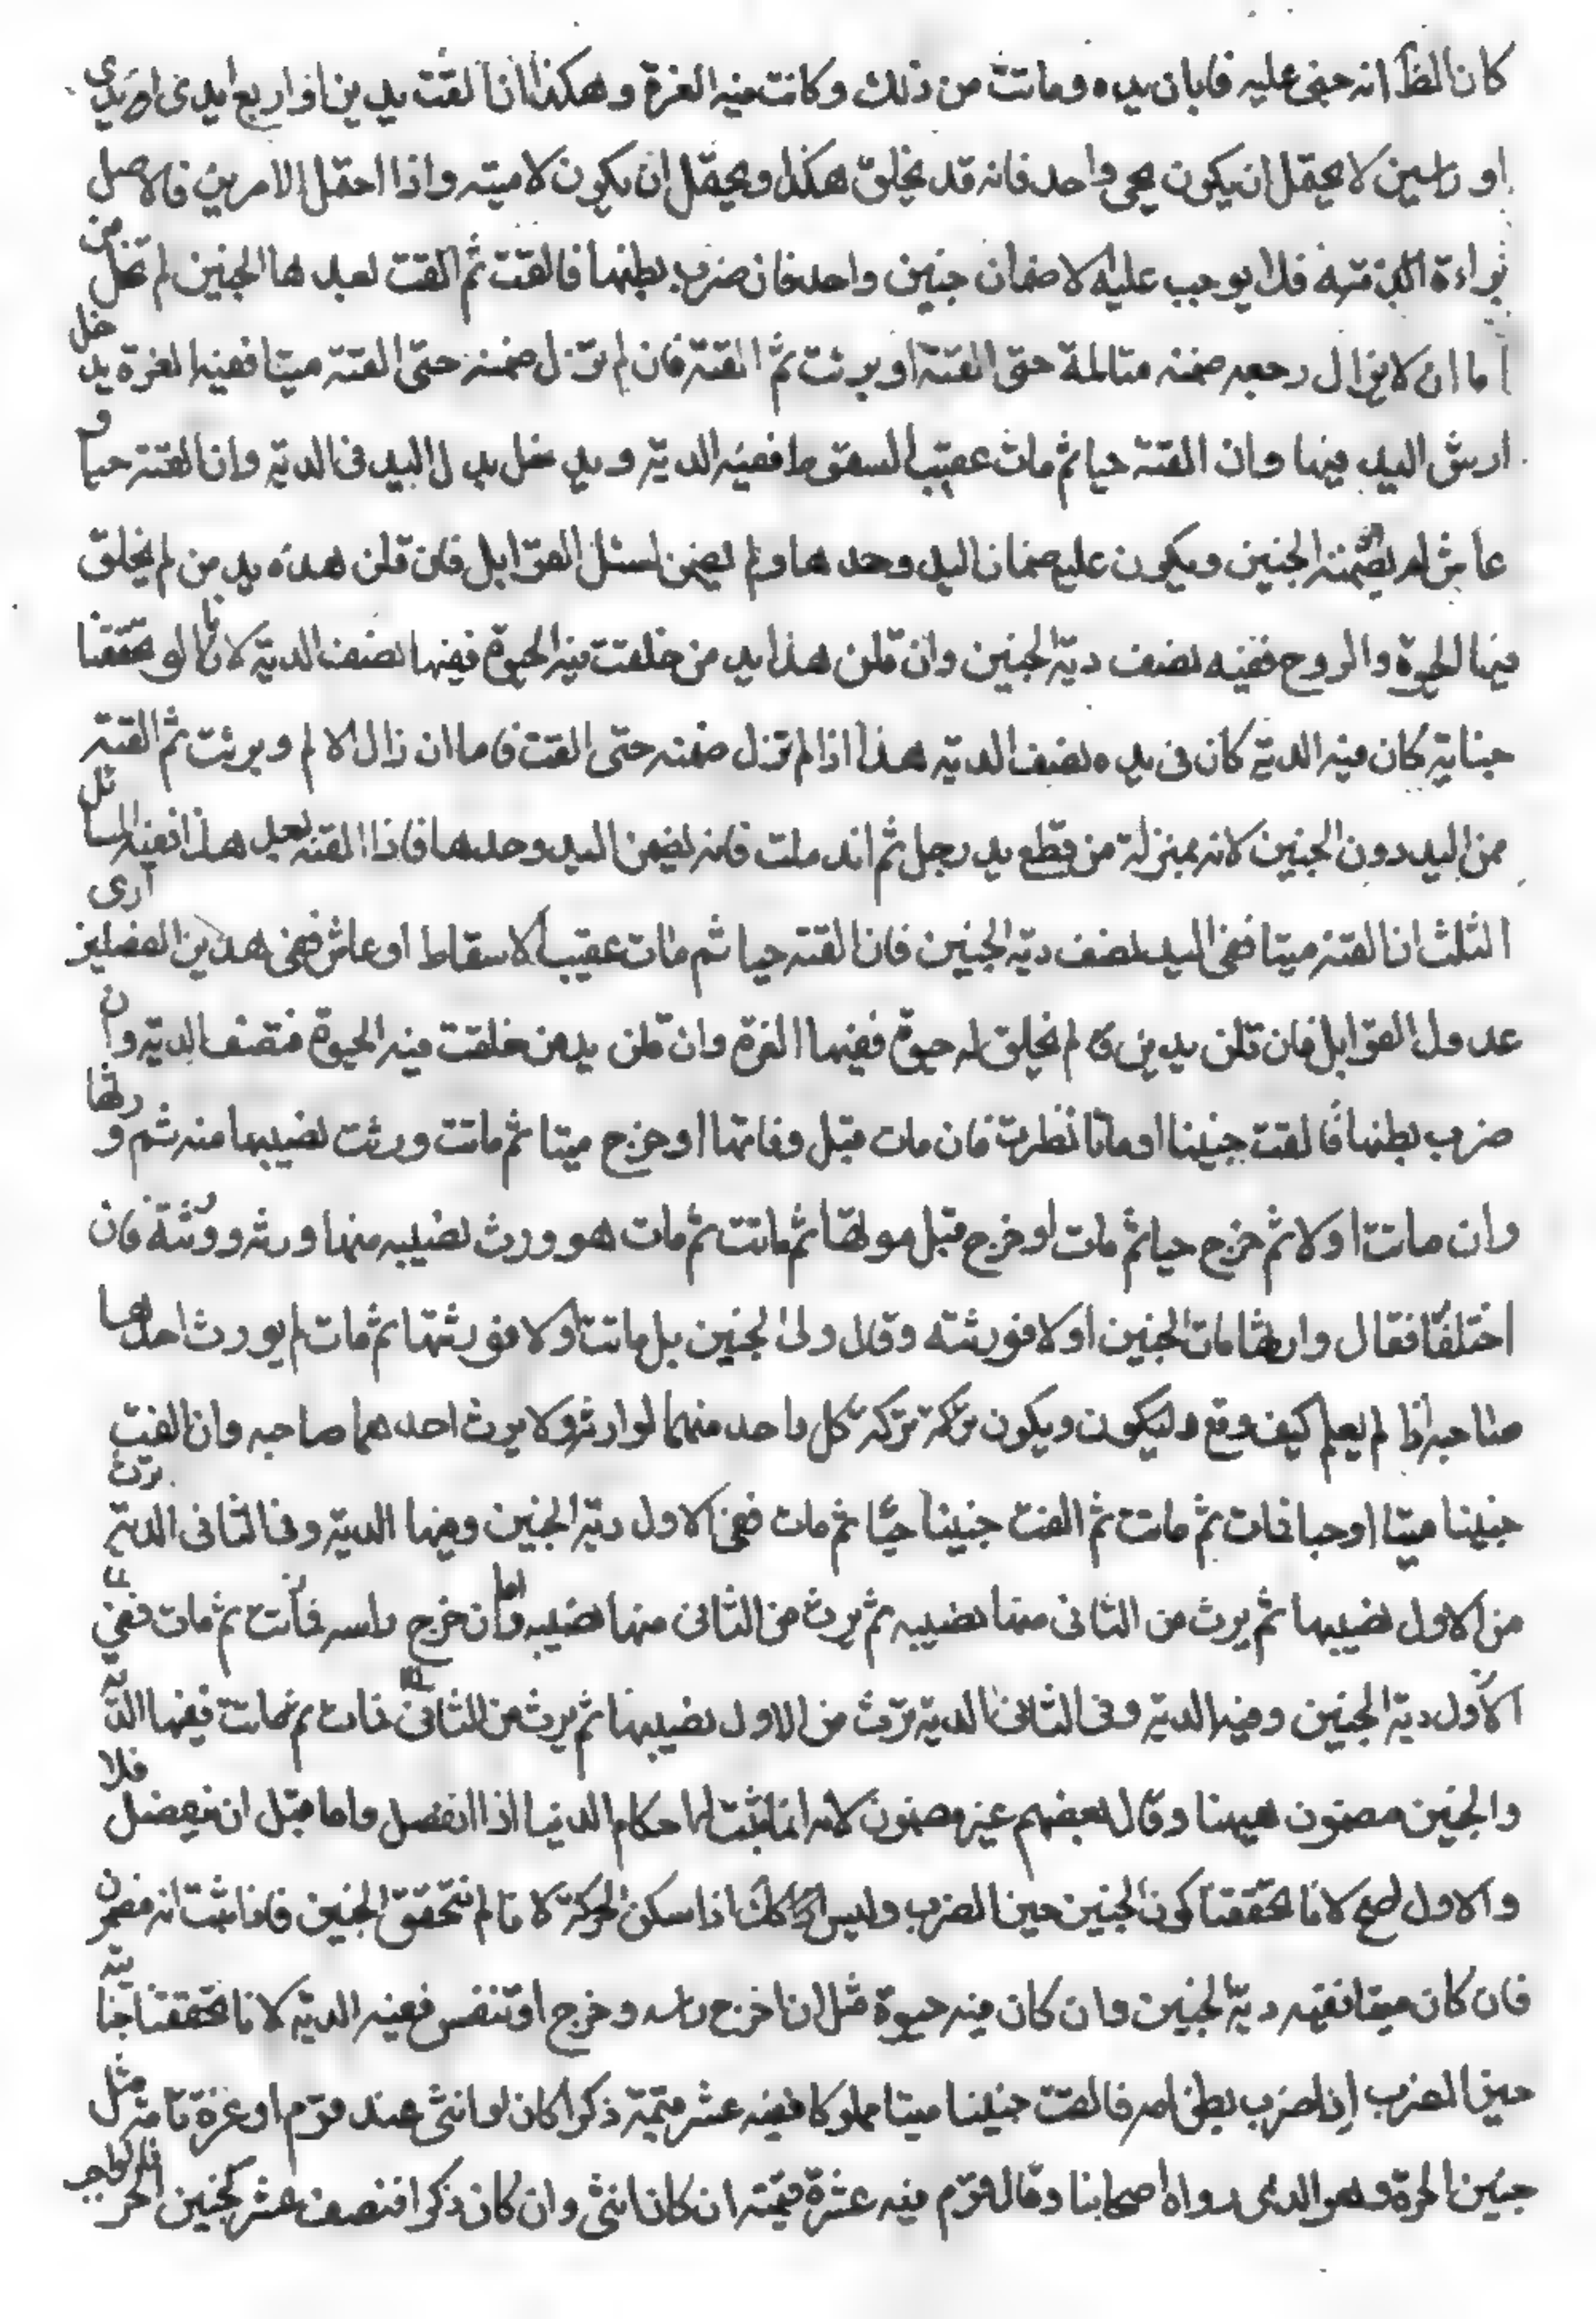 كان الظ انه جنى عليه فابان يده وماتت من ذلك وكانت فيه الغرة وهكذا ان القت يدين او اربع ايدى او يدى
او راسين لا يحتمل ان يكون بجى واحد فانه قد يخلق هكذا ويحتمل ان يكون لاميته واذا احتمل الامرين فالاصل
براءة الذمة فلا يوجب عليه الا ضمان جنين واحد فان ضرب بطنها فالقت ثم القت بعدها الجنين لم تخل من
اما ان لا يزال رجعه ضمنه متالمة حتى القته او برئت ثم القته فان لم تزل ضمنه حتى القته ميتا ففيه الغرة يدخل
ارش اليد فيها وان القته حيا ثم مات عقيب السقوط ففيه الدية ويدخل بدل اليد فى الدية وان القته حيا و
عاش لم يضمنه الجنين ويكون عليه ضمان اليد وحدها ولم يضمن لسئل القوابل فان قلن هذه يد من لم يخلق
فيها الحيوة والروح ففيه نصف دية الجنين وان قلن هذا يد من خلقت فيه الحيوة ففيها نصف الدية لانا لو تحققنا
جناية كان فيه الدية كان فى يده نصف الدية هذا اذا لم تزل ضمنه حتى القت فاما ان زال الالم وبرئت ثم القته
ممن اليد دون الجنين لانه بمنزلة من قطع يد رجل ثم اندملت فانه يضمن اليد وحدها فاذا القته بعد هذا ففيه المسائل
الثلث ان القته ميتا ففى اليد نصف دية الجنين فان القته حيا ثم مات عقيب الاسقاط او عاش ففى هذين الفصلين ارى
عدول القوابل فان قلن يد من لم يخلق له حيوة ففيها الغرة وان قلن يد من خلقت فيه الحيوة فنصف الدية وان
ضرب بطنها فالقت جنينا وماتا نظرت فان مات قبل وفاتها او خرج ميتا ثم ماتت ورثت نصيبها منه ثم ورثها
وان ماتت اولا ثم خرج حيا ثم مات او خرج قبل موتها ثم ماتت ثم مات هو وورث نصيبه منها ورثه وورثته فان
اختلفا فقال وارثها مات الجنين اولا فورثته وقال ولى الجنين بل ماتت اولا فورثها ثم مات لم يورث احدهما
صاحبه اذا لم يعلم كيف وقع وليكون ويكون تركة تركة كل واحد منهما لوارثه ولا يرث احدهما صاحبه وان القت
جنينا ميتا او حيا فات ثم ماتت ثم القت جنينا حيا ثم مات ففى الاول دية الجنين وفيها الدية وفى الثانى الدية ترث
من الاول نصيبها ثم يرث من الثانى منها نصيبه ثم يرث من الثانى منها نصيبه واما ان خرج راسه فماتت ثم مات ففي
الاول دية الجنين وفيه الدية وفى الثانى الدية ترث من الاول نصيبها ثم يرث من الثانى فات ثم ماتت ففيها الدية
والجنين مضمون هيهنا وقال بعضهم غير مضمون لانه انما يثبت له احكام الدنيا اذا انفصل واما قبل ان ينفصل فلا
والاول اصح لانا تحققنا كون الجنين حين الضرب وليس كك اذا سكن الحركة لانا لم نتحقق الجنين فاذا ثبت انه مضمون
فان كان ميتا ففيه دية الجنين وان كان فيه حيوة مثل ان اخرج راسه وخرج او تنفس ففيه الدية لانا تحققنا جناية
حين الضرب اذا ضرب بطن امه فالقت جنينا ميتا مملوكا ففيه عشر قيمة ذكرا كان او انثى عند قوم او غرة تامة مثل
جنين الحرة وهو الذى رواه اصحابنا وقال قوم فيه عشرة قيمته ان كان انثى وان كان ذكرا فنصف عشر كجنين الحر